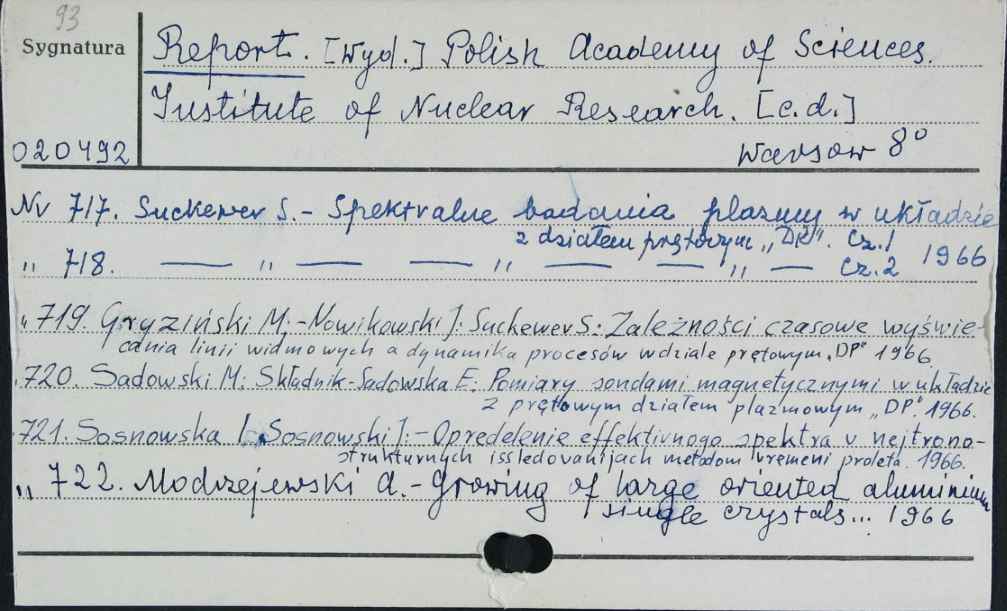 93
Sygnatura
Report. [Wyd.] Polish Academy of Sciences.
Institute of Nuclear Research. [c.d.]
020492
Warsow 8°
Nr 717. Suckewer S. - Spektralne badania plazmy w układzie
z działem prętowym „DP”. Cz. 1
„ 718. — „ — — „ — — „ — Cz. 2 1966
„ 719. Gryziński M. - Nowikowski J: Suckewer S: Zależności czasowe wyświe-
cania linii widmowych a dynamika procesów w dziale prętowym „DP” 1966
„ 720. Sadowski M: Składnik-Sadowska E: Pomiary sondami magnetycznymi w układzie
z prętowym działem plazmowym „DP”. 1966.
„ 721. Sosnowska I., Sosnowski J: - Opredelenie effektivnogo spektra v nejtrono-
strukturnych issledovanijach metodom vremeni proleta. 1966.
„ 722. Modrzejewski A. - Growing of large oriented aluminium
single crystals... 1966